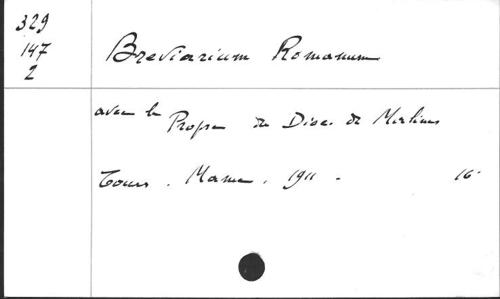 329
147
2
Breviarium Romanum
avec le Propre du Dioc. de Malines
Tours. Mame. 1911 - 16°